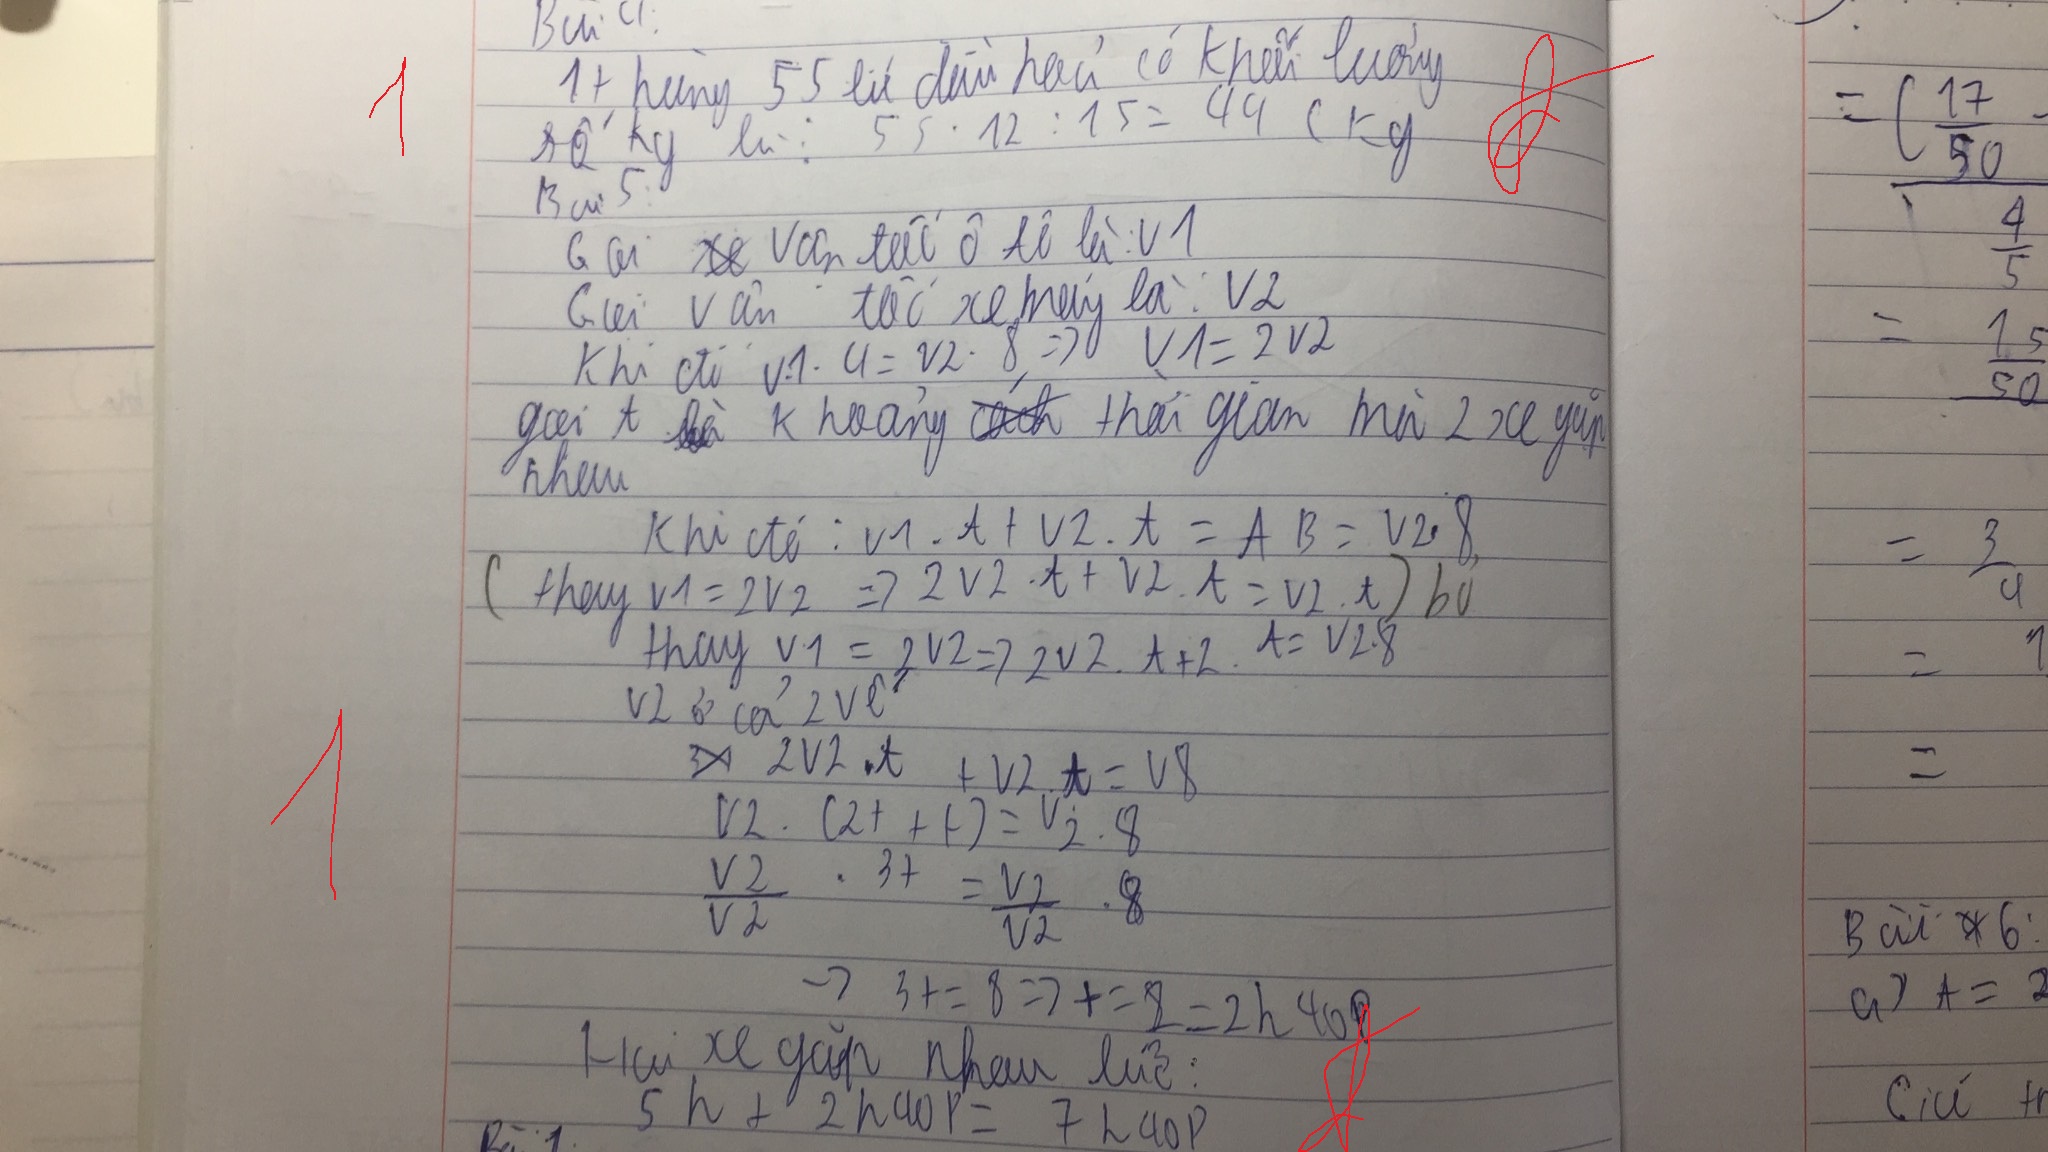 Bài 4:
1 thùng 55 lít dầu hoả có khối lượng
số kg là: 55 . 12 : 15 = 44 (kg
Bài 5:
Gọi vận tốc ô tô là: V1
Gọi vận tốc xe máy là: V2
Khi đó V1 . 4 = V2 . 8 => V1 = 2V2
gọi t là khoảng thời gian mà 2 xe gặp
nhau
Khi đó : V1 . t + V2 . t = AB = V2 . 8
( thay V1 = 2V2 => 2V2 . t + V2 . t = V2 . t ) bỏ
thay V1 = 2V2 => 2V2 . t + 2 . t = V2 . 8
V2 ở cả 2 vế
2V2 . t + V2 . t = V8
V2 . (2t + t) = V2 . 8
V2/V2 . 3t = V2/V2 . 8
-> 3t = 8 => t = 8 = 2h40p
Hai xe gặp nhau lúc:
5h + 2h40p = 7h40p
1
1
= ( 17/50 -
4/5
= 15/50
= 3/4
= 1
=
Bài 6:
a) A = 2
Giá tr